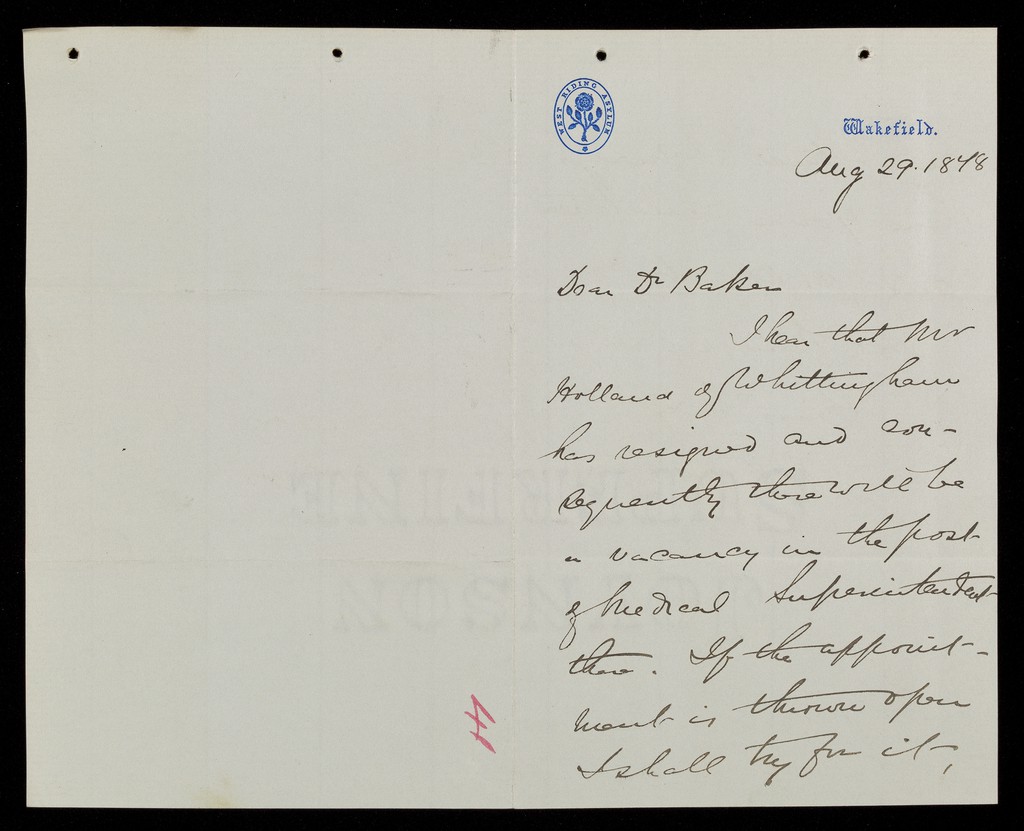 WEST RIDING ASYLUM
Wakefield.
Aug 29. 1878
Dear Dr Baker
I hear that Mr
Holland of Whittingham
has resigned and con-
sequently there will be
a vacancy in the post
of Medical Superintendent
there. If the appoint-
ment is thrown open
I shall try for it,